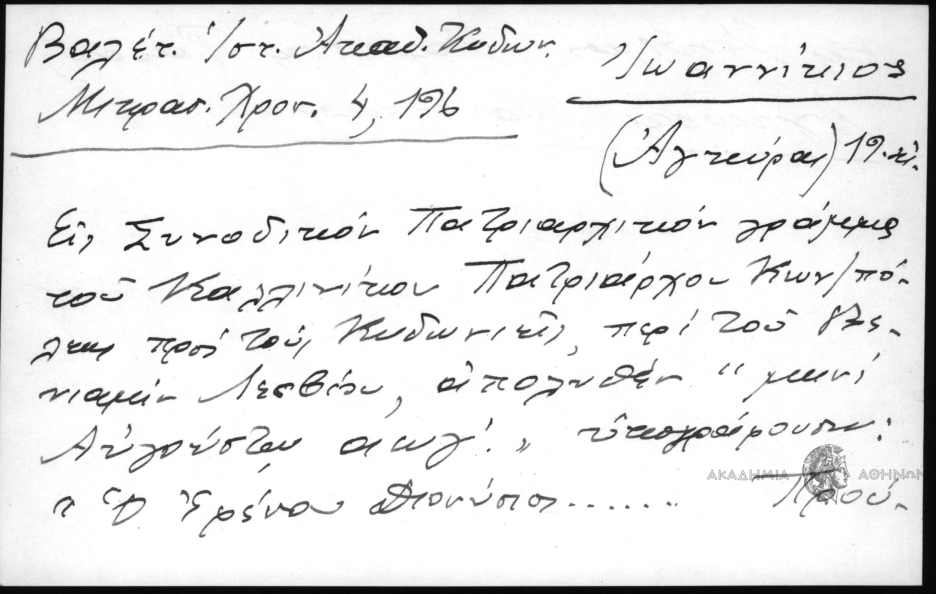 Βαλέτ. Ἱστ. Ἀκαδ. Κυδων.
Μικρασ. Χρον. 4, 196
Ἰωαννίκιος
(Ἀγκύρας) 19. αἰ.
Εἰς Συνοδικὸν Πατριαρχικὸν γράμμα
τοῦ Καλλινίκου Πατριάρχου Κων/πό-
λεως πρὸς τοὺς Κυδωνιεῖς, περὶ τοῦ Βε-
νιαμὶν Λεσβίου, ἀπολυθὲν "μηνὶ
Αὐγούστῳ αωγ'." ὑπογράφουσιν:
Ἐφέσου Διονύσιος.......
ΑΚΑΔΗΜΙΑ ΑΘΗΝΩΝ